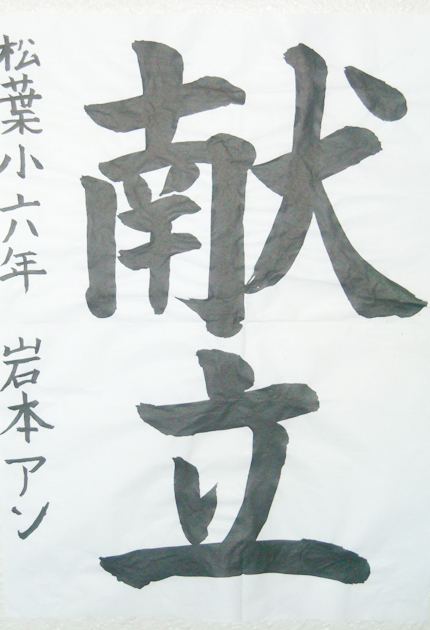 献立
松葉小六年 岩本アン